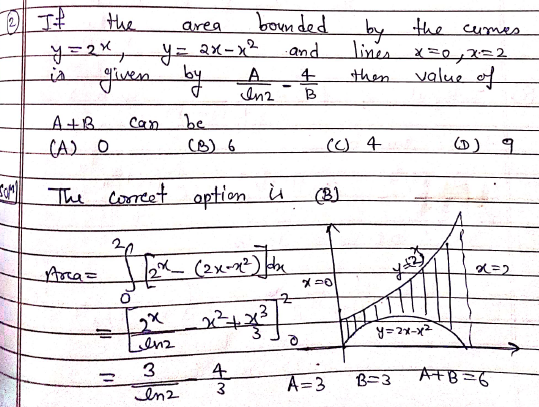 ② If the area bounded by the curves
y = 2^x, y = 2x-x² and lines x=0, x=2
is given by A/ln2 - 4/B then value of
A+B can be
(A) 0 (B) 6 (C) 4 (D) 9
Solⁿ) The correct option is (B)
Area = ∫₀² [2^x - (2x-x²)]dx
= [2^x/ln2 - x² + x³/3]₀²
= 3/ln2 - 4/3 A=3 B=3 A+B=6
x=0
y=2^x
x=2
y=2x-x²